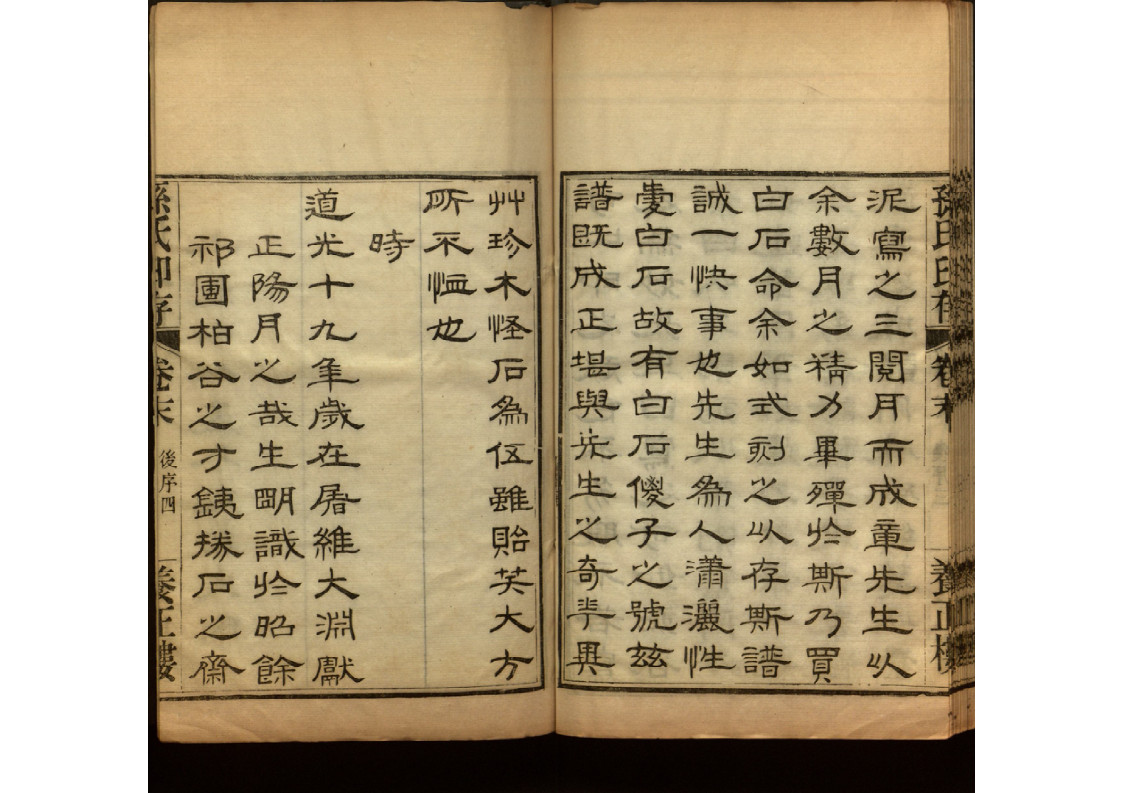 泥寫之三閱月而成章先生以
余數月之精力畢殫於斯乃買
白石命余如式刻之以存斯譜
誠一快事也先生為人瀟灑性
愛白石故有白石儍子之號茲
譜既成正堪與先生之奇半異
艸珍木怪石為伍雖貽笑大方
所不恤也
時
道光十九年歲在屠維大淵獻
正陽月之哉生明識於昭餘
祁圃柏谷之才銕掾石之齋
孫氏印存 卷末 後序四 養正樓